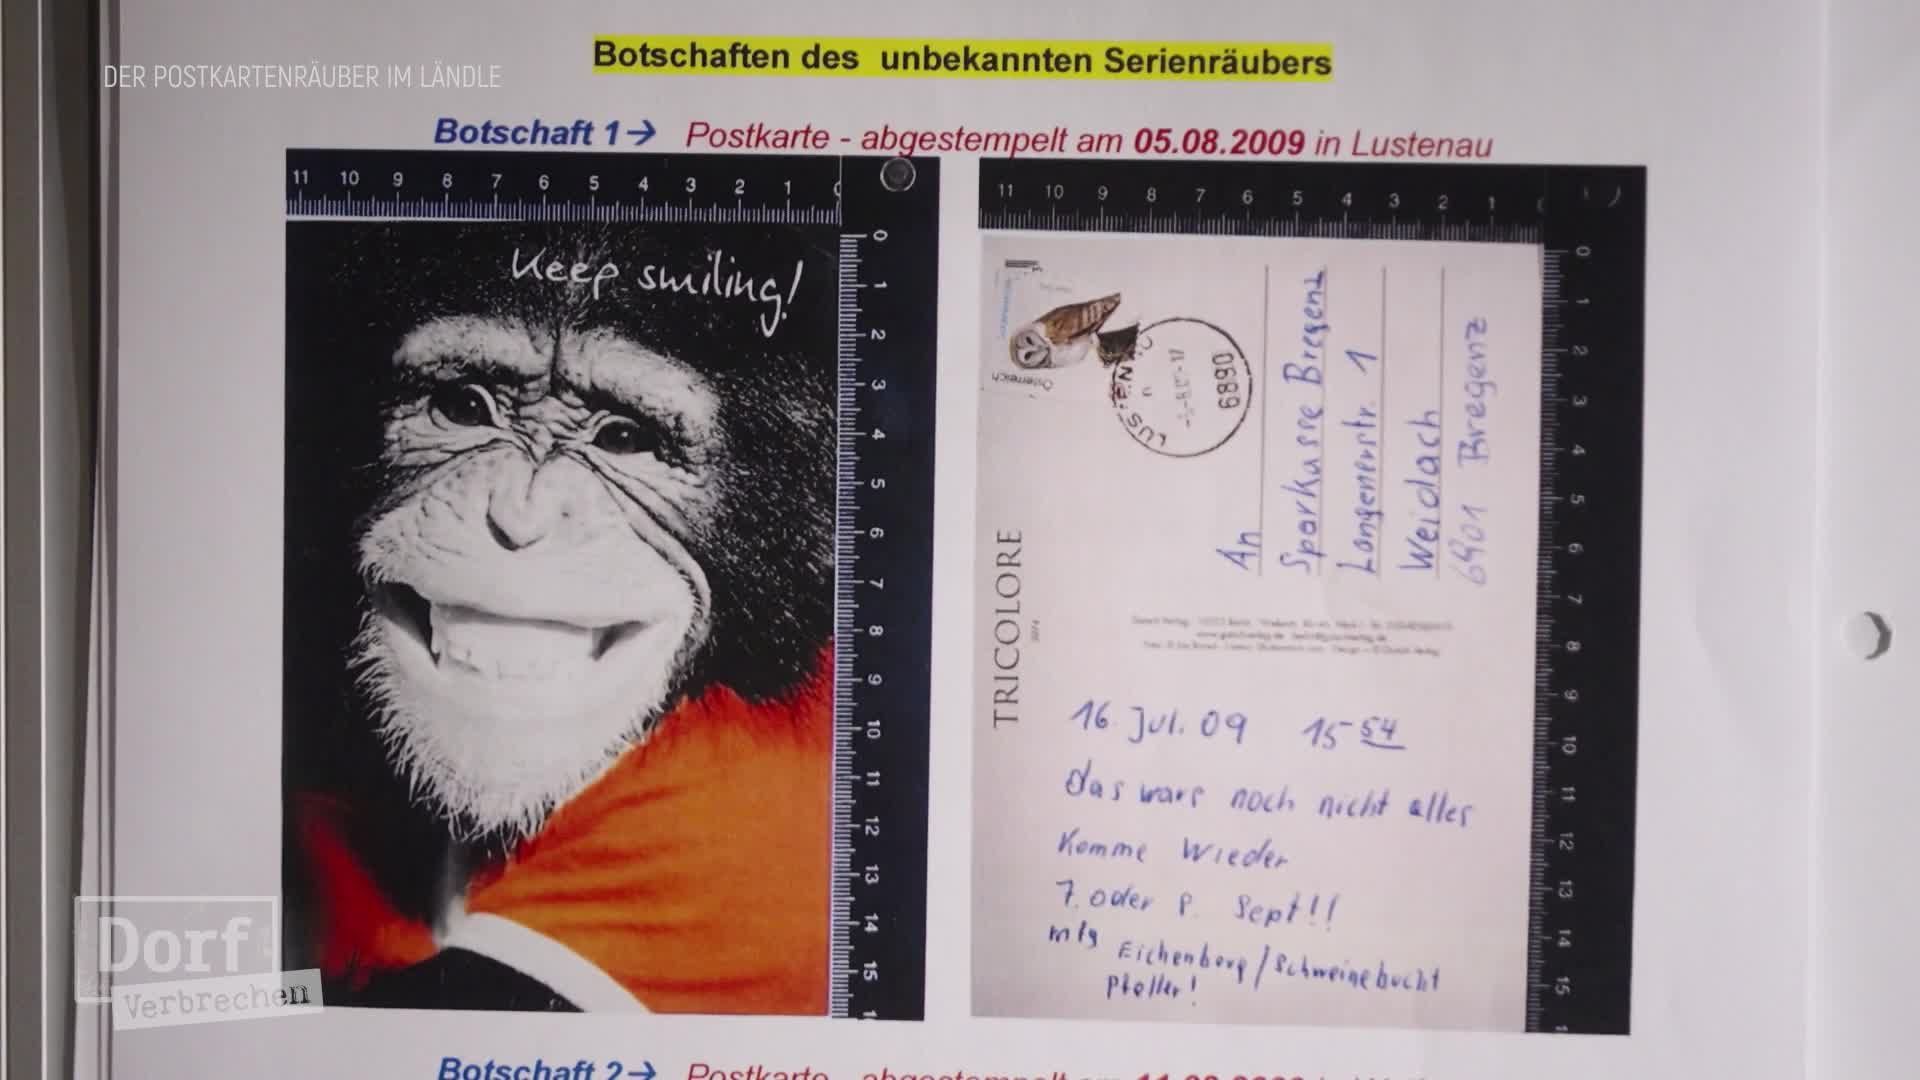 DER POSTKARTENRÄUBER IM LÄNDLE
Botschaften des unbekannten Serienräubers
Botschaft 1→ Postkarte - abgestempelt am 05.08.2009 in Lustenau
11 10 9 8 7 6 5 4 3 2 1 0
0 1 2 3 4 5 6 7 8 9 10 11 12 13 14 15
Keep smiling!
11 10 9 8 7 6 5 4 3 2 1
0 1 2 3 4 5 6 7 8 9 10 11 12 13 14 15
Österreich
6890
An
Sparkasse Bregenz
Langenerstr. 1
Weidach
6901 Bregenz
TRICOLORE
16. Jul. 09 15 54
das wars noch nicht alles
Komme Wieder
7. oder 8. Sept!!
mfg Eichenberg/Schweinebucht
Pfeller!
Dorf
Verbrechen
Botschaft 2→ Postkarte - abgestempelt am